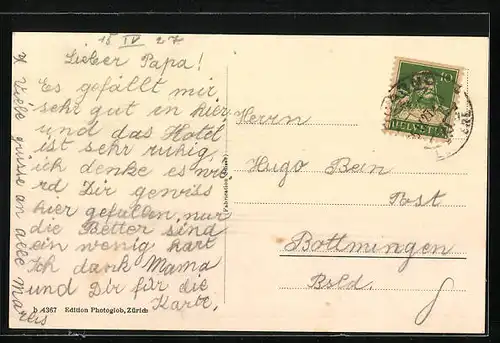 15 IV 27
Lieber Papa!
Es gefällt mir
sehr gut in hier,
und das Hotel
ist sehr ruhig,
ich denke es wie
rd Dir gewiss
hier gefallen, nur
die Better sind
ein wenig hart
Ich dank Mama
und Dir für die
Karte,
Viele grüsse an alle Mareis
b 4367 Edition Photoglob, Zürich
Herrn
Hugo Bein
Post
Bottmingen
Bsld.
10
HELVETIA